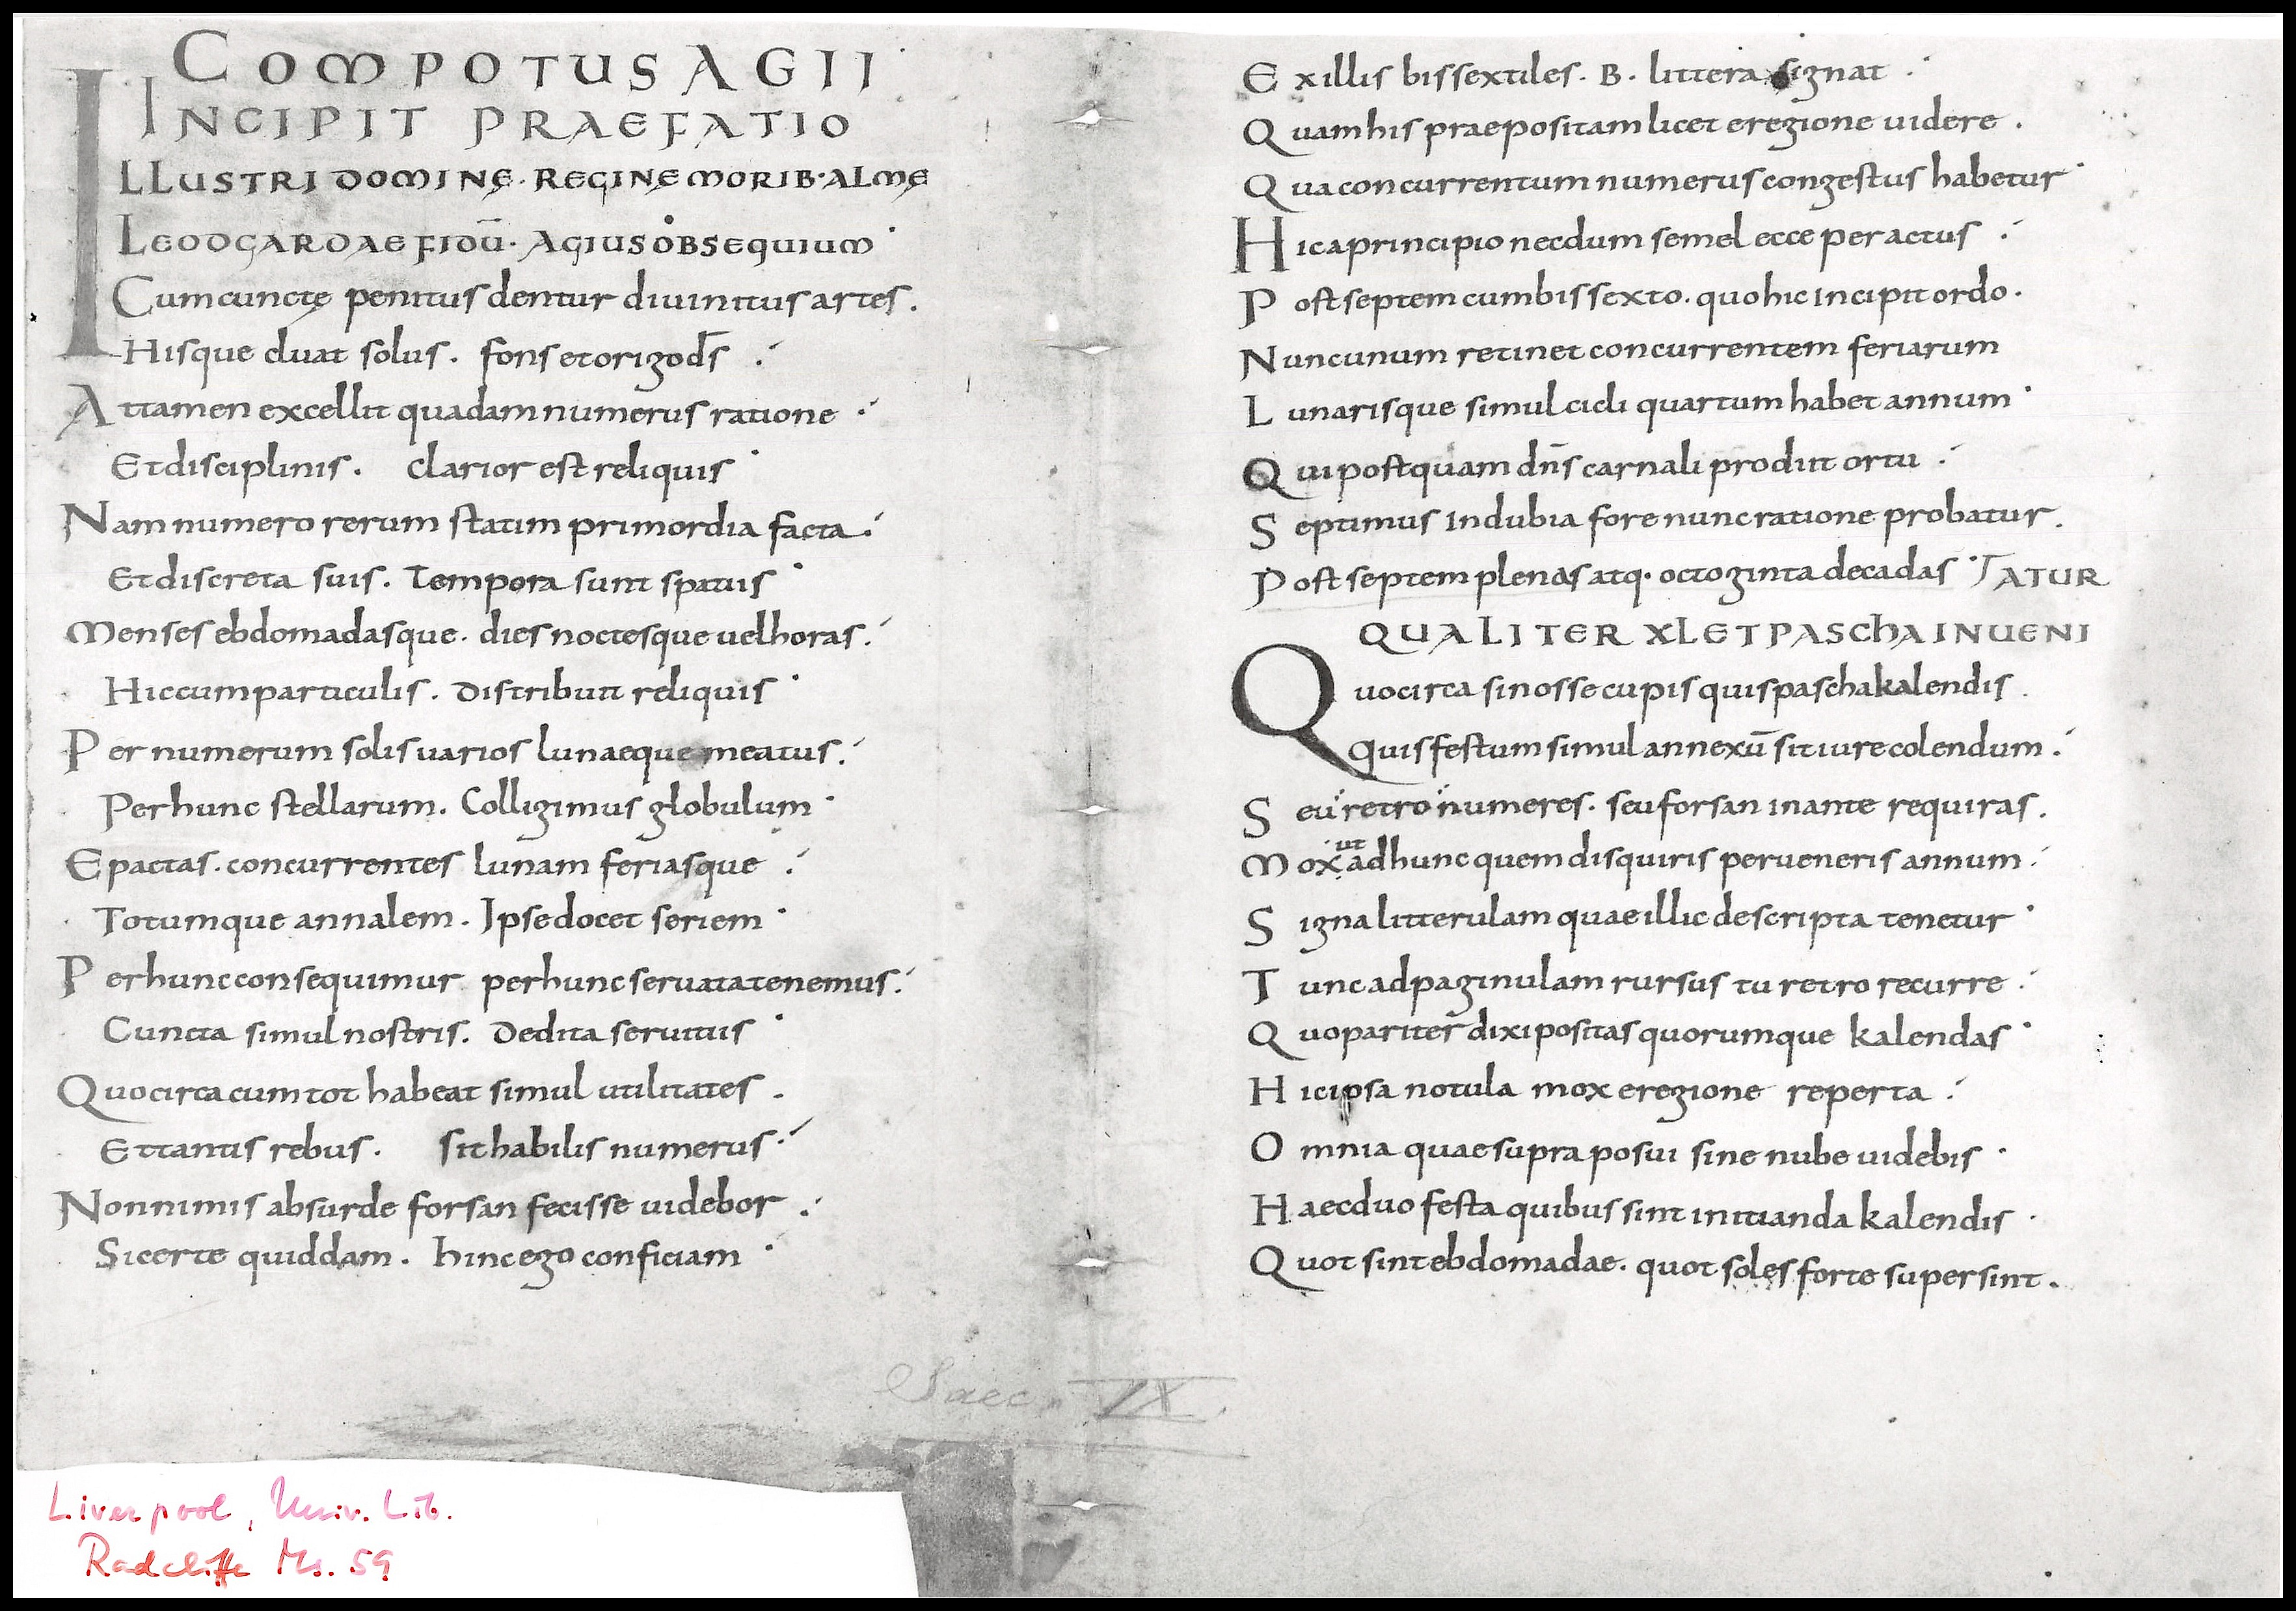 COMPOTUS AGII
INCIPIT PRAEFATIO
ILLUSTRI DOMINĘ · REGINĘ MORIB · ALMĘ
LEODGARDAE FIDŪ · AGIUS OBSEQUIUM
Cum cunctę penitus dentur divinitus artes.
Hisque cluat solus. fons et origo ds̄
Attamen excellit quadam numerus ratione
Et disciplinis. clarior est reliquis
Nam numero rerum statim primordia facta
Et discreta suis. Tempora sunt spatiis
Menses ebdomadasque. dies noctesque uel horas.
Hic cum particulis. Distribuit reliquis
Per numerum solis uarios lunaeque meatus.
Per hunc stellarum. Colligimus globulum
Epactas. concurrentes lunam feriasque
Totumque annalem. Ipse docet seriem
Per hunc consequimur per hunc seruata tenemus.
Cuncta simul nostris. Dedita seruitiis
Quocirca cum tot habeat simul utilitates.
Et tantis rebus. sit habilis numerus
Non nimis absurde forsan fecisse uidebor
Si certe quiddam. hinc ego conficiam
Saec. IX.
Liverpool, Univ. Lib.
Radcliffe Ms. 59
Ex illis bissextiles. B. littera signat
Quam his praepositam licet e regione uidere.
Qua concurrentum numerus congestus habetur
Hic a principio necdum semel ecce peractus
Post septem cum bissexto. quo hic incipit ordo.
Nunc unum retinet concurrentem feriarum
Lunarisque simul cicli quartum habet annum
Qui postquam dn̄s carnali prodiit ortu
Septimus indubia fore nunc ratione probatur.
Post septem plenas atq. octoginta decadas TATUR
QUALITER XL ET PASCHA INUENI
Quocirca si nosse cupis quis pascha kalendis
Quis festum simul annexū sit iure colendum.
Seu retro numeres. seu forsan in ante requiras.
Mox ut ad hunc quem disquiris perueneris annum
Signa litterulam quae illic descripta tenetur
Tunc ad paginulam rursus tu retro recurre
Quo pariter dixi positas quorumque kalendas
Hic ipsa notula mox e regione reperta
Omnia quae supra posui sine nube uidebis
Haec duo festa quibus sint initianda kalendis
Quot sint ebdomadae. quot soles forte supersint.